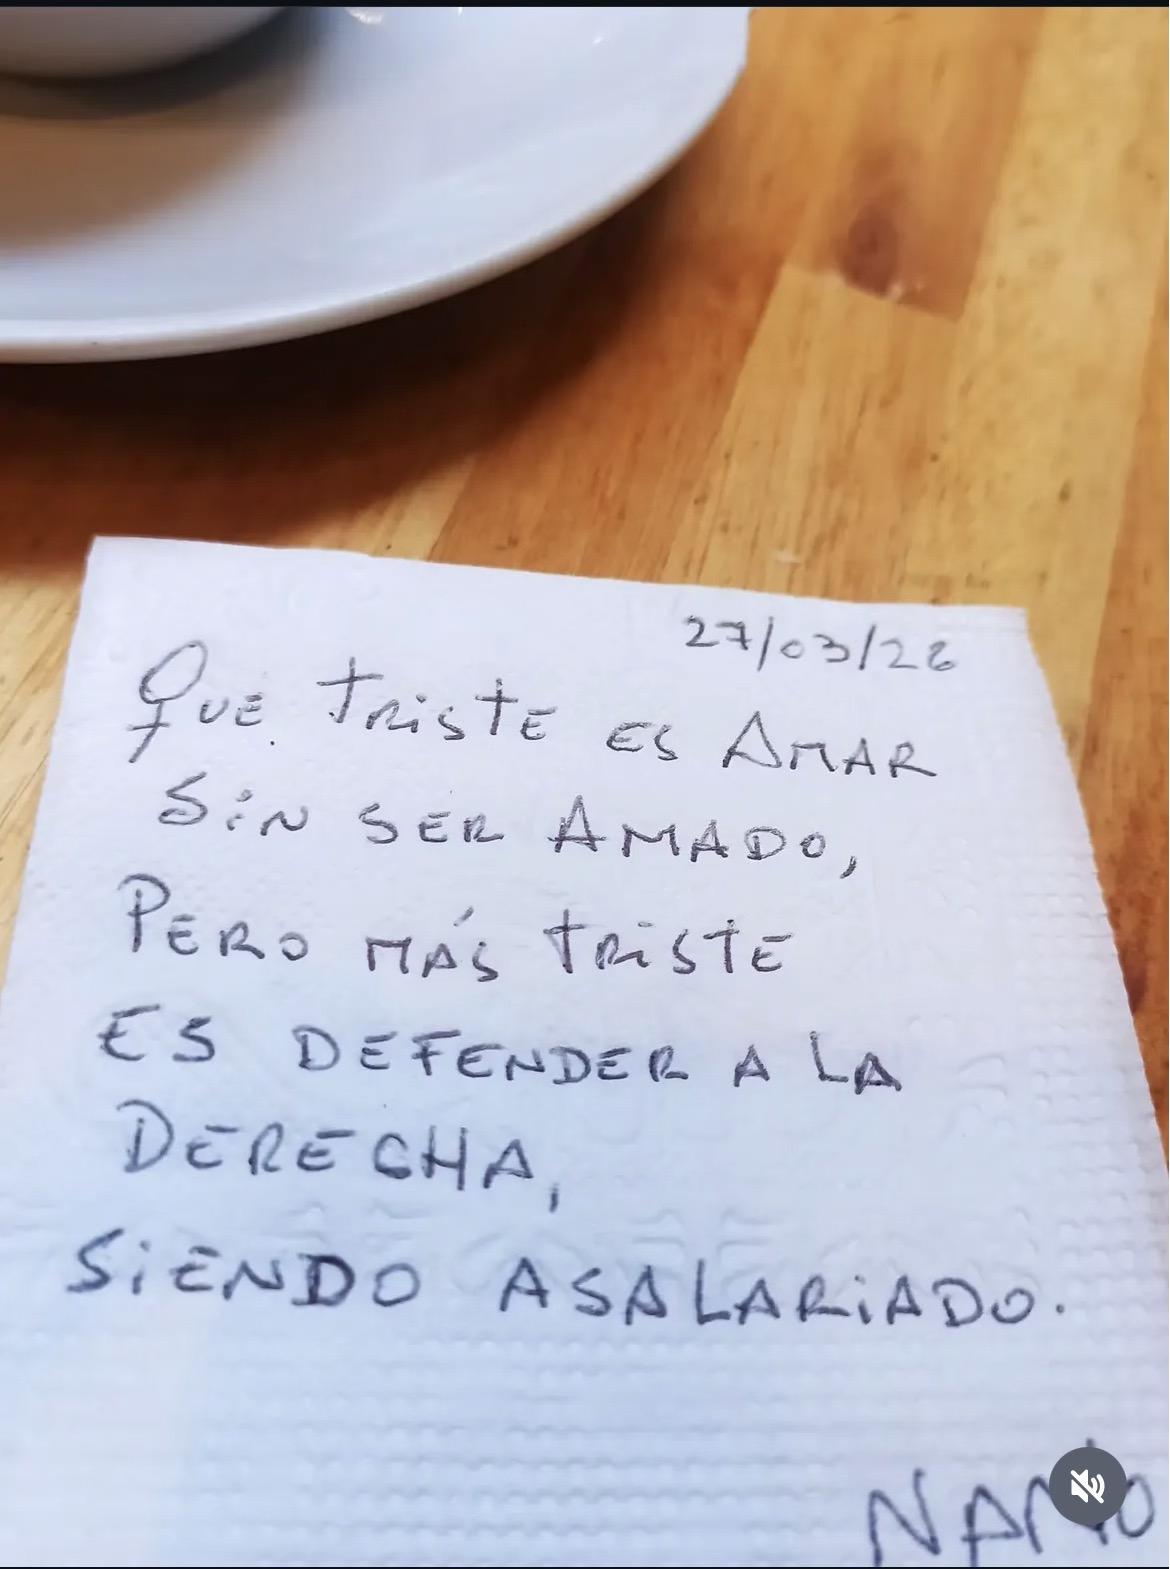 27/03/26
Que triste es Amar
Sin ser Amado,
Pero más triste
es defender a la
Derecha,
siendo asalariado.